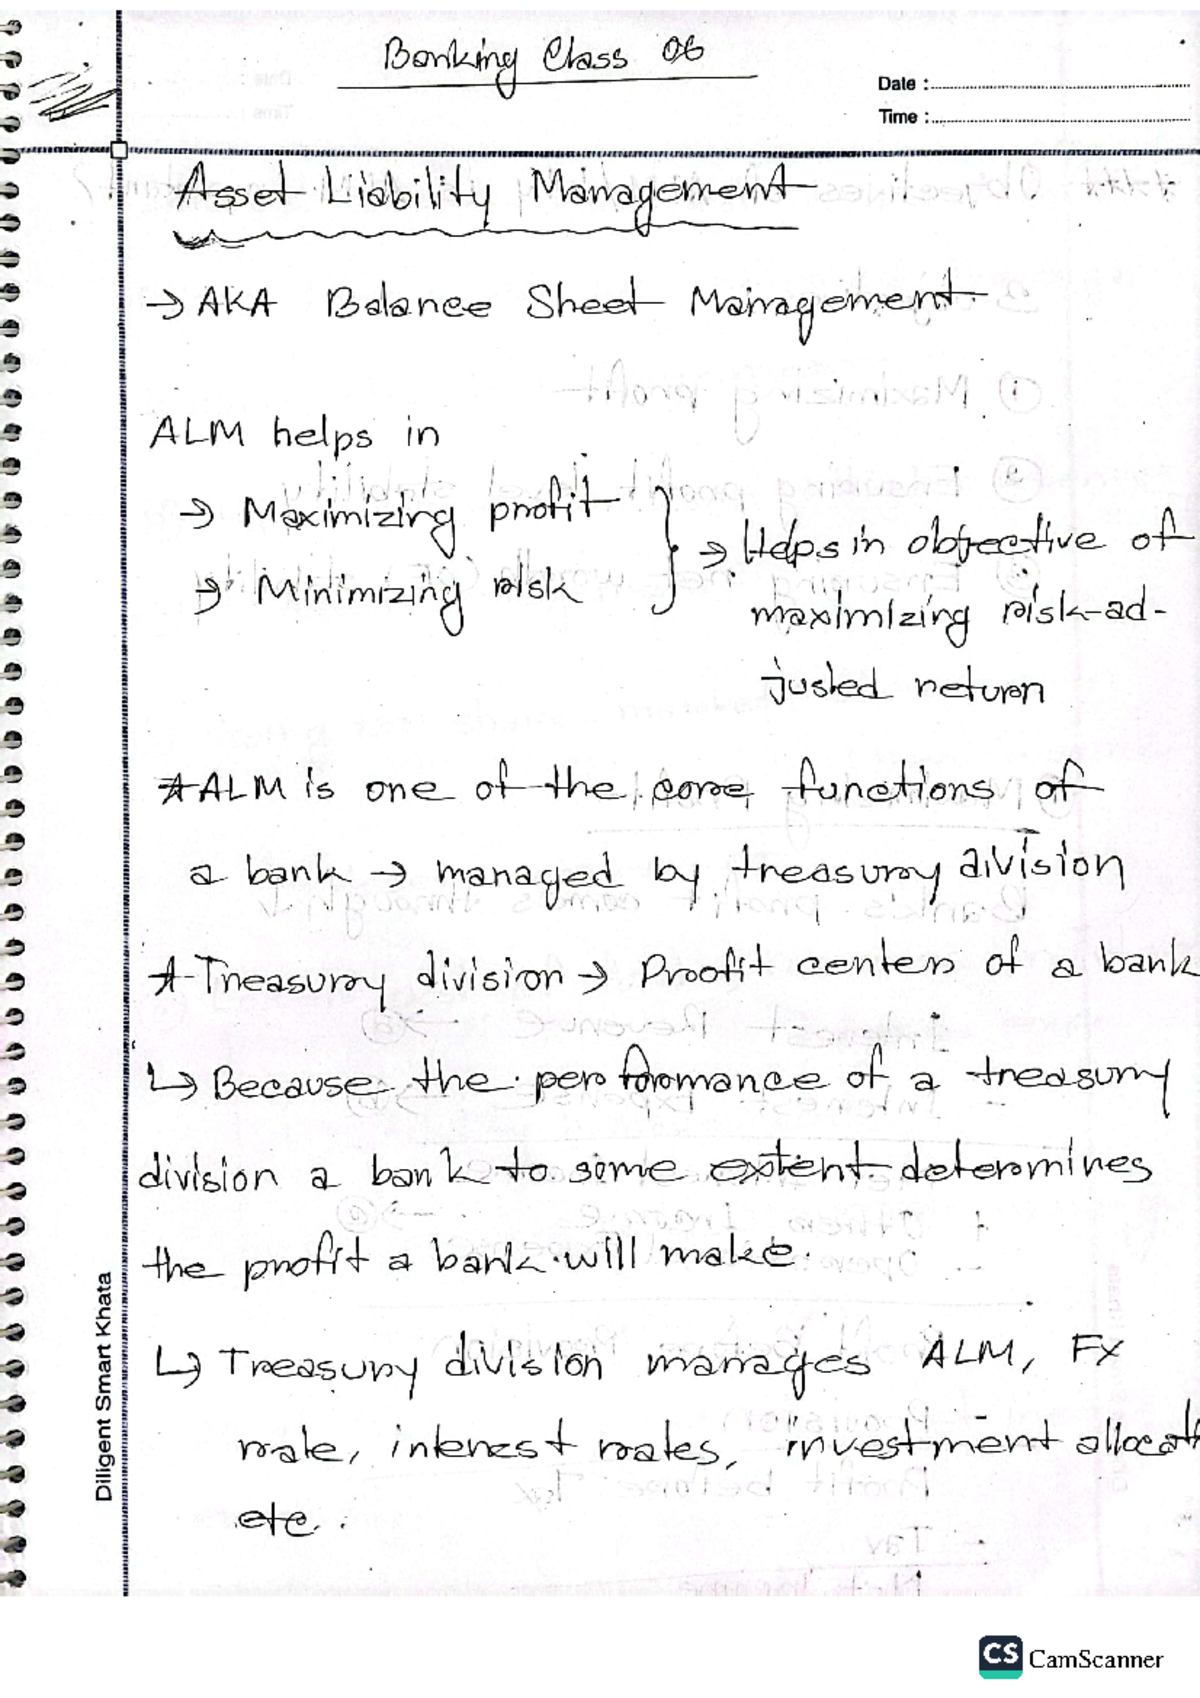 Banking Class 06
Date :
Time :
Asset Liability Management
→ AKA Balance Sheet Management
ALM helps in
→ Maximizing profit
→ Minimizing risk
→ Helps in objective of
maximizing risk-ad-
justed return
* ALM is one of the core functions of
a bank → managed by treasury division
* Treasury division → Profit center of a bank
↳ Because the performance of a treasury
division a bank to some extent determines
the profit a bank will make.
↳ Treasury division manages ALM, FX
rate, interest rates, investment allocati
etc.
Diligent Smart Khata
CS CamScanner